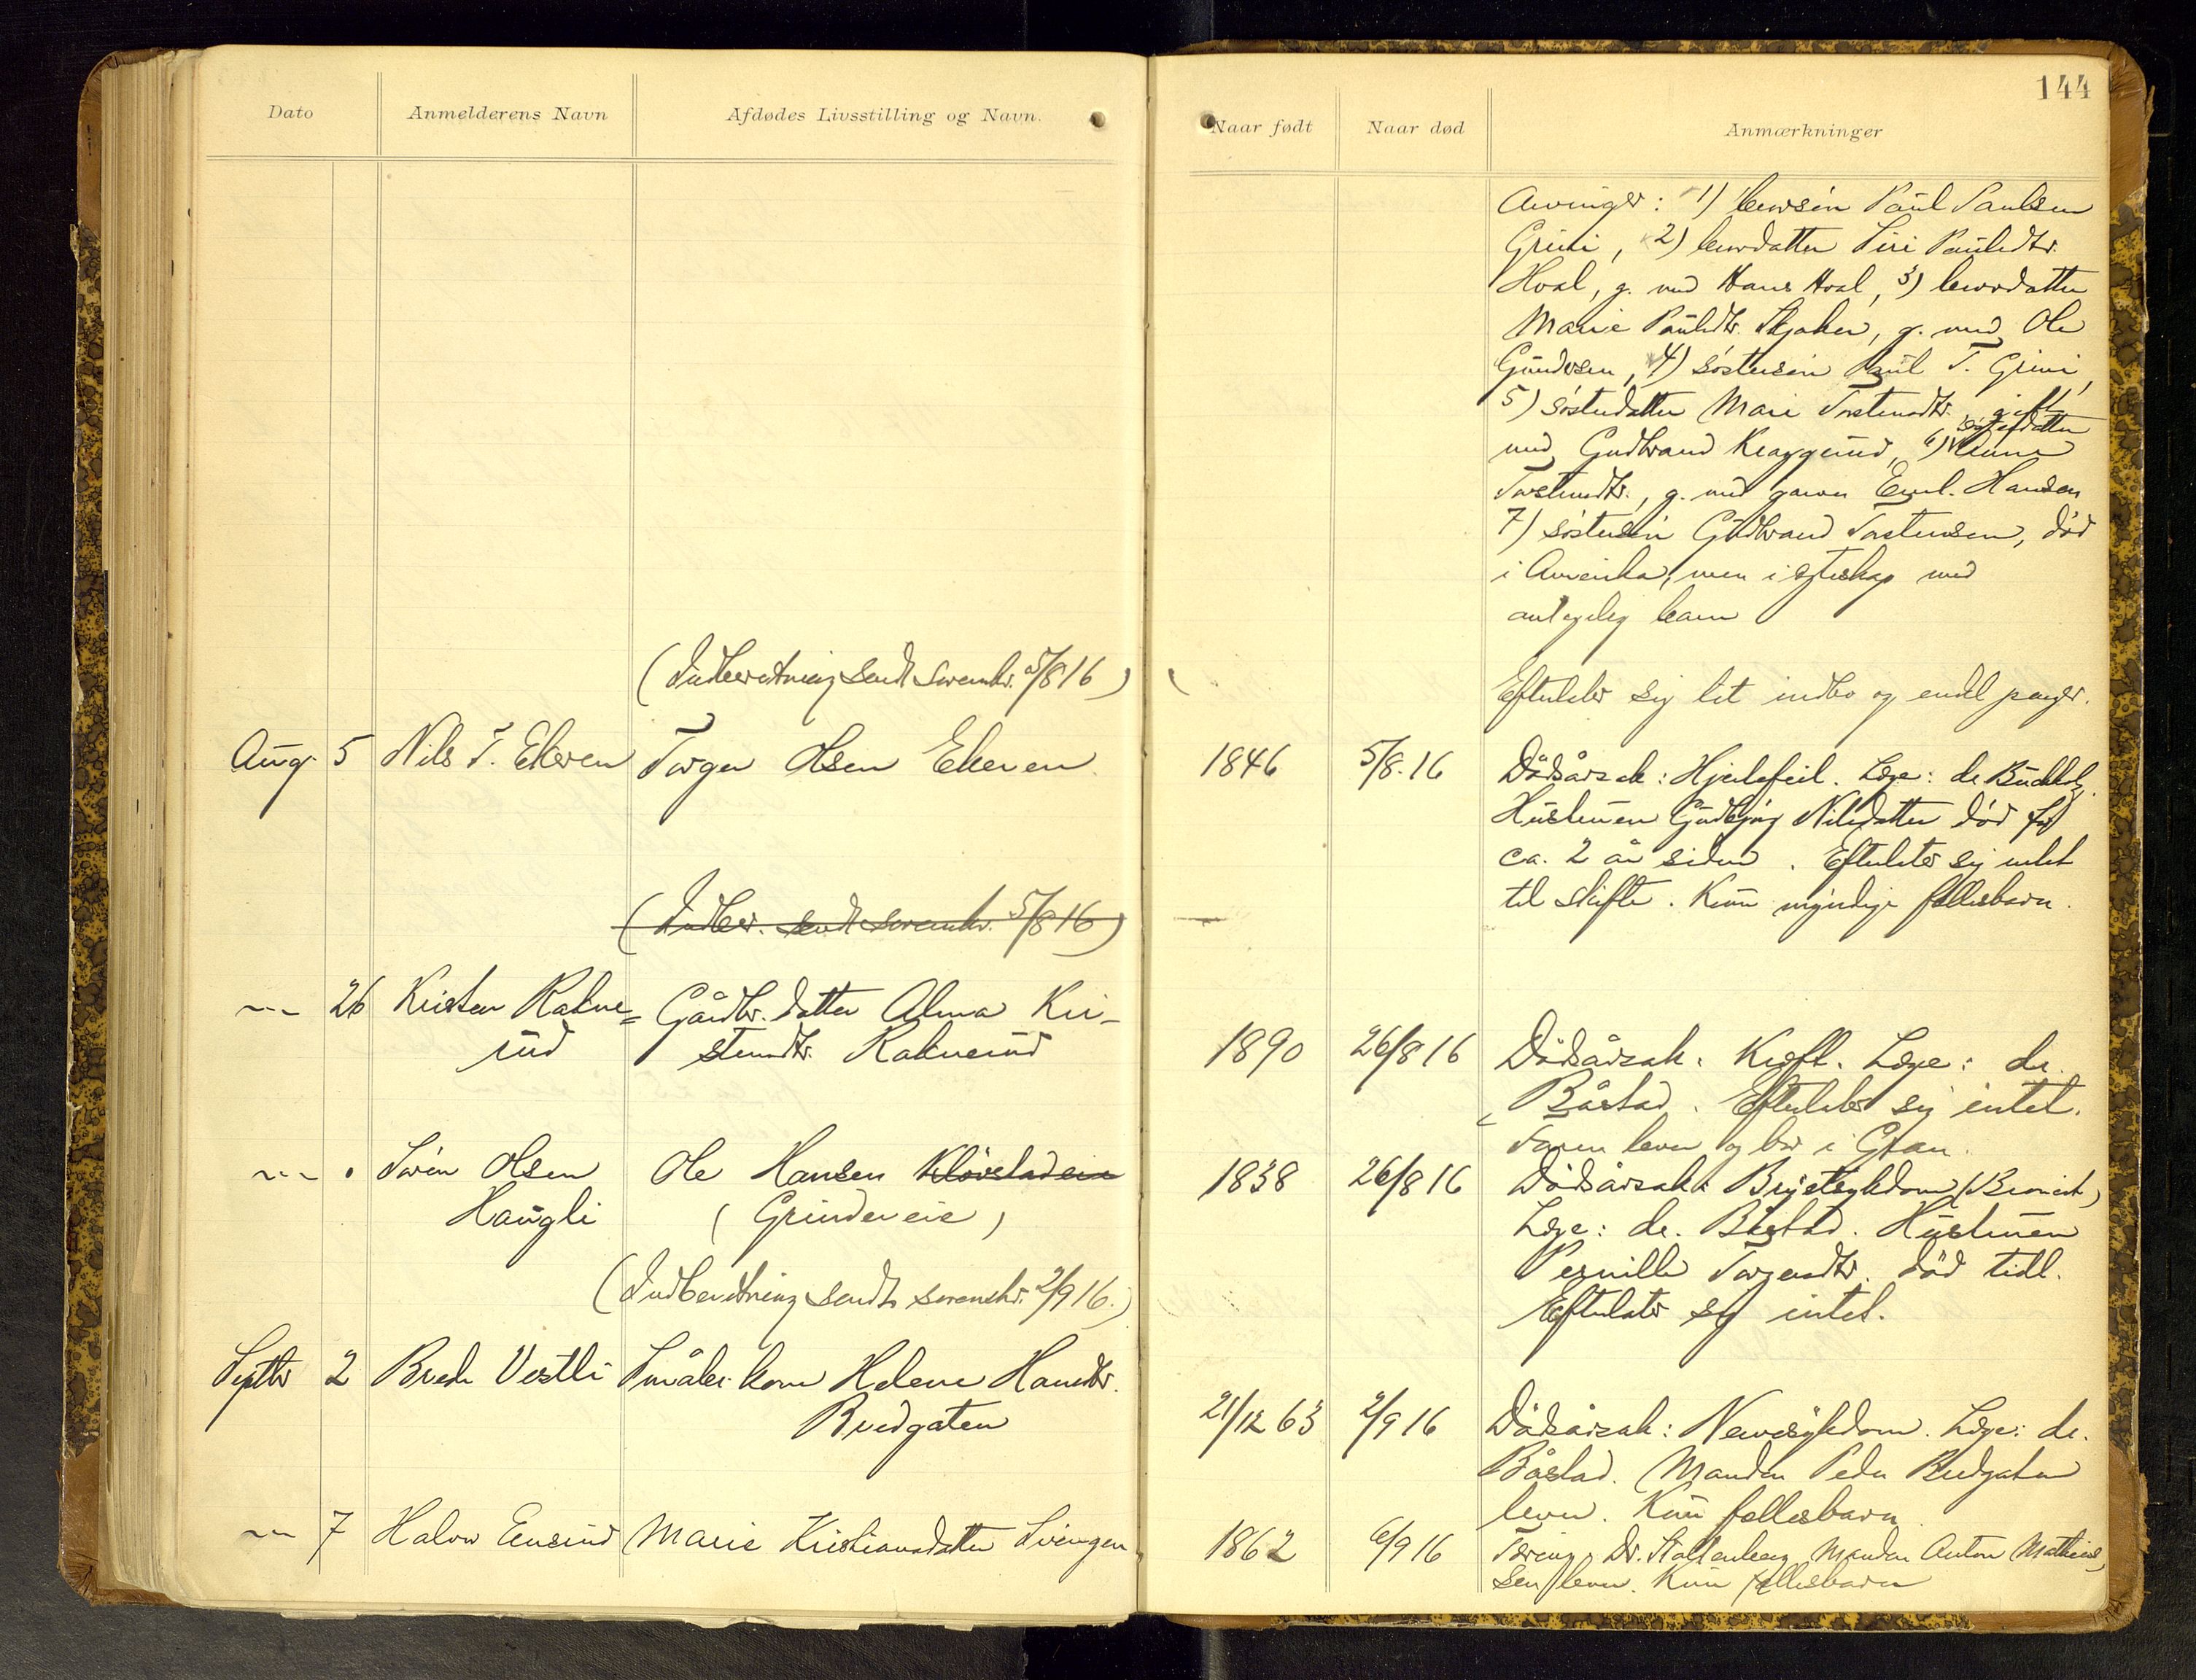 144
Dato Anmelderens Navn Afdødes Livsstilling og Navn.
Naar født Naar død Anmærkninger
Arvinger: 1) brorsön Paul Paulsen
Grini, 2) brordatter Siri Paulsdtr.
Hoal, g. med Hans Hoal, 3) brordatter
Marie Paulsdtr. Skjaker, g. med Ole
Gundersen, 4) söstersön Paul T. Grini,
5) sösterdatter Mari Torstensdtr. gift
med Gudbrand Kraggerud, 6) sösterdatter
Torstensdtr., g. med garver Eml. Hansen
7) söstersön Gudbrand Torstensen, död
i Amerika, men i egteskap med
antagelig barn
(Indberetning sendt sorenskr. 5/8 16)
Efterlater sig lit indbo og endel penger.
Aug. 5 Nils T. Ekeren Torger Olsen Ekeren 1846 5/8.16 Dödsårsak: Hjertefeil. Læge: dr Buchholz.
Hustruen Gudbjørg Nilsdatter död for
ca. 2 år siden. Efterlater sig intet
til skifte. Kun myndige fellesbarn.
(Indber. sendt sorenskr. 5/8 16)
-"- 26 Kristen Rakne= Gårdbr. datter Alma Kri-
rud stensdtr. Raknerud 1890 26/8 16 Dödsårsak: Kreft. Læge: dr.
Båstad. Efterlater sig intet.
Faren lever og bor i Gran.
-"- " Sören Olsen Ole Hansen Klövstadeie 1838 26/8 16 Dödsårsak: Brystsykdom (Bronkit)
Haugli (Grindereie) Læge: dr. Båstad. Hustruen
Pernille Torgersdtr. död tidl.
(Indberetning sendt sorenskr. 2/9 16.)
Efterlater sig intet.
Septbr 2 Brede Vestli Småbr. kone Helene Hansdtr.
Bredgaten 21/12 63 2/9 16 Dödsårsak: Nervesykdom. Læge: dr.
Båstad. Manden Peder Bredgaten
lever. Kun fellesbarn.
-"- 7 Halvor Ensrud Marie Kristiansdatter Svingen 1862 6/9 16 Tæring. Dr. Stoltenberg. Manden Anton Mathias
sen lever. Kun fellesbarn